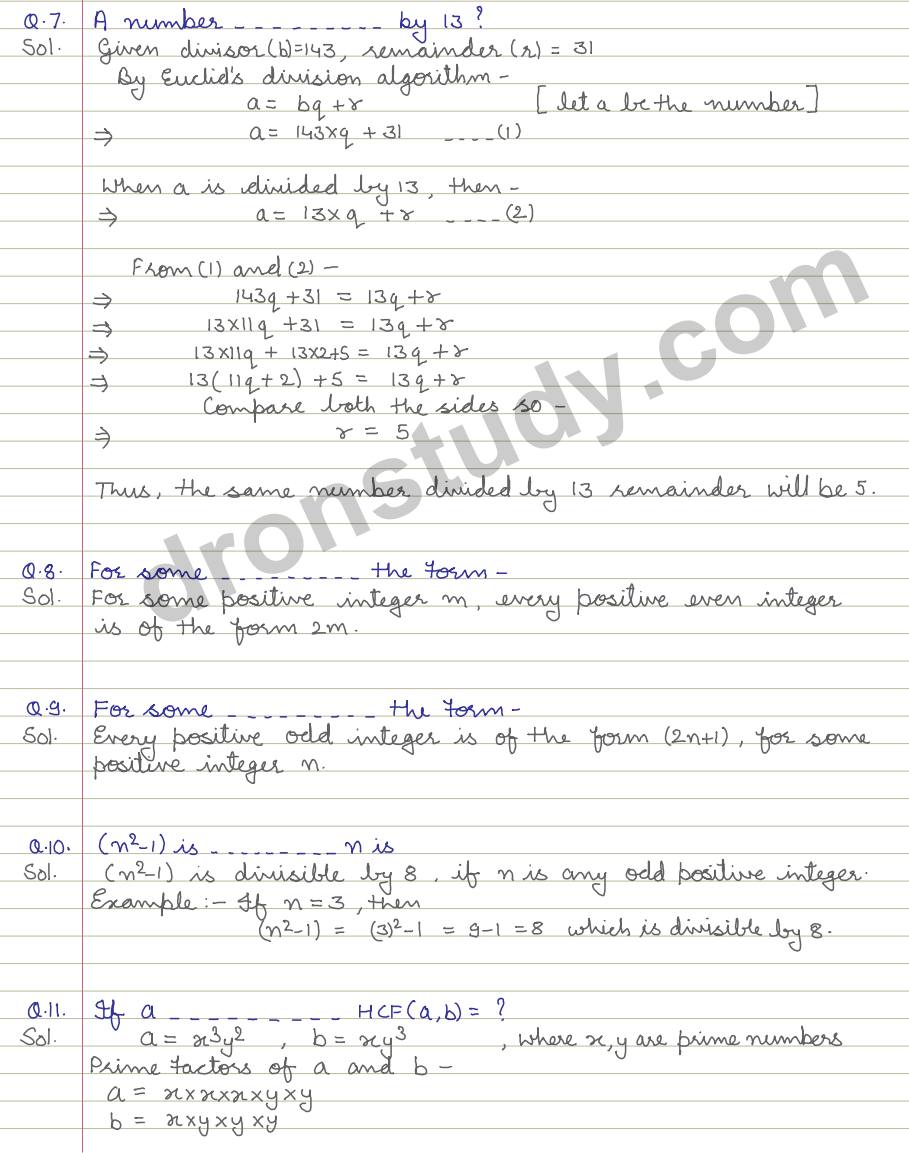 Q.7. A number _ _ _ _ _ _ _ _ _ by 13 ?
Sol. Given divisor (b)=143, remainder (r) = 31
By Euclid's division algorithm -
a = bq + r [ let a be the number]
⇒ a = 143×q + 31 _ _ _ _ (1)
When a is divided by 13, then -
⇒ a = 13×q + r _ _ _ _ (2)
From (1) and (2) -
⇒ 143q + 31 = 13q + r
⇒ 13×11q + 31 = 13q + r
⇒ 13×11q + 13×2+5 = 13q + r
⇒ 13(11q+2) + 5 = 13q + r
Compare both the sides so -
⇒ r = 5
Thus, the same number divided by 13 remainder will be 5.
Q.8. For some _ _ _ _ _ _ _ _ _ the form -
Sol. For some positive integer m, every positive even integer
is of the form 2m.
Q.9. For some _ _ _ _ _ _ _ _ _ the form -
Sol. Every positive odd integer is of the form (2n+1), for some
positive integer n.
Q.10. (n²-1) is _ _ _ _ _ _ _ _ _ n is
Sol. (n²-1) is divisible by 8, if n is any odd positive integer.
Example :- If n = 3, then
(n²-1) = (3)²-1 = 9-1 = 8 which is divisible by 8.
Q.11. If a _ _ _ _ _ _ _ _ _ HCF(a,b) = ?
Sol. a = x³y² , b = xy³ , where x,y are prime numbers
Prime factors of a and b -
a = x×x×x×y×y
b = x×y×y×y
dronstudy.com